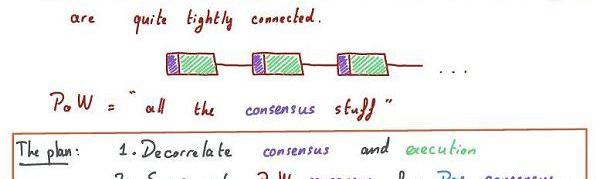 are quite tightly connected.
...
PoW = "all the consensus stuff"
The plan: 1. Decorrelate consensus and execution